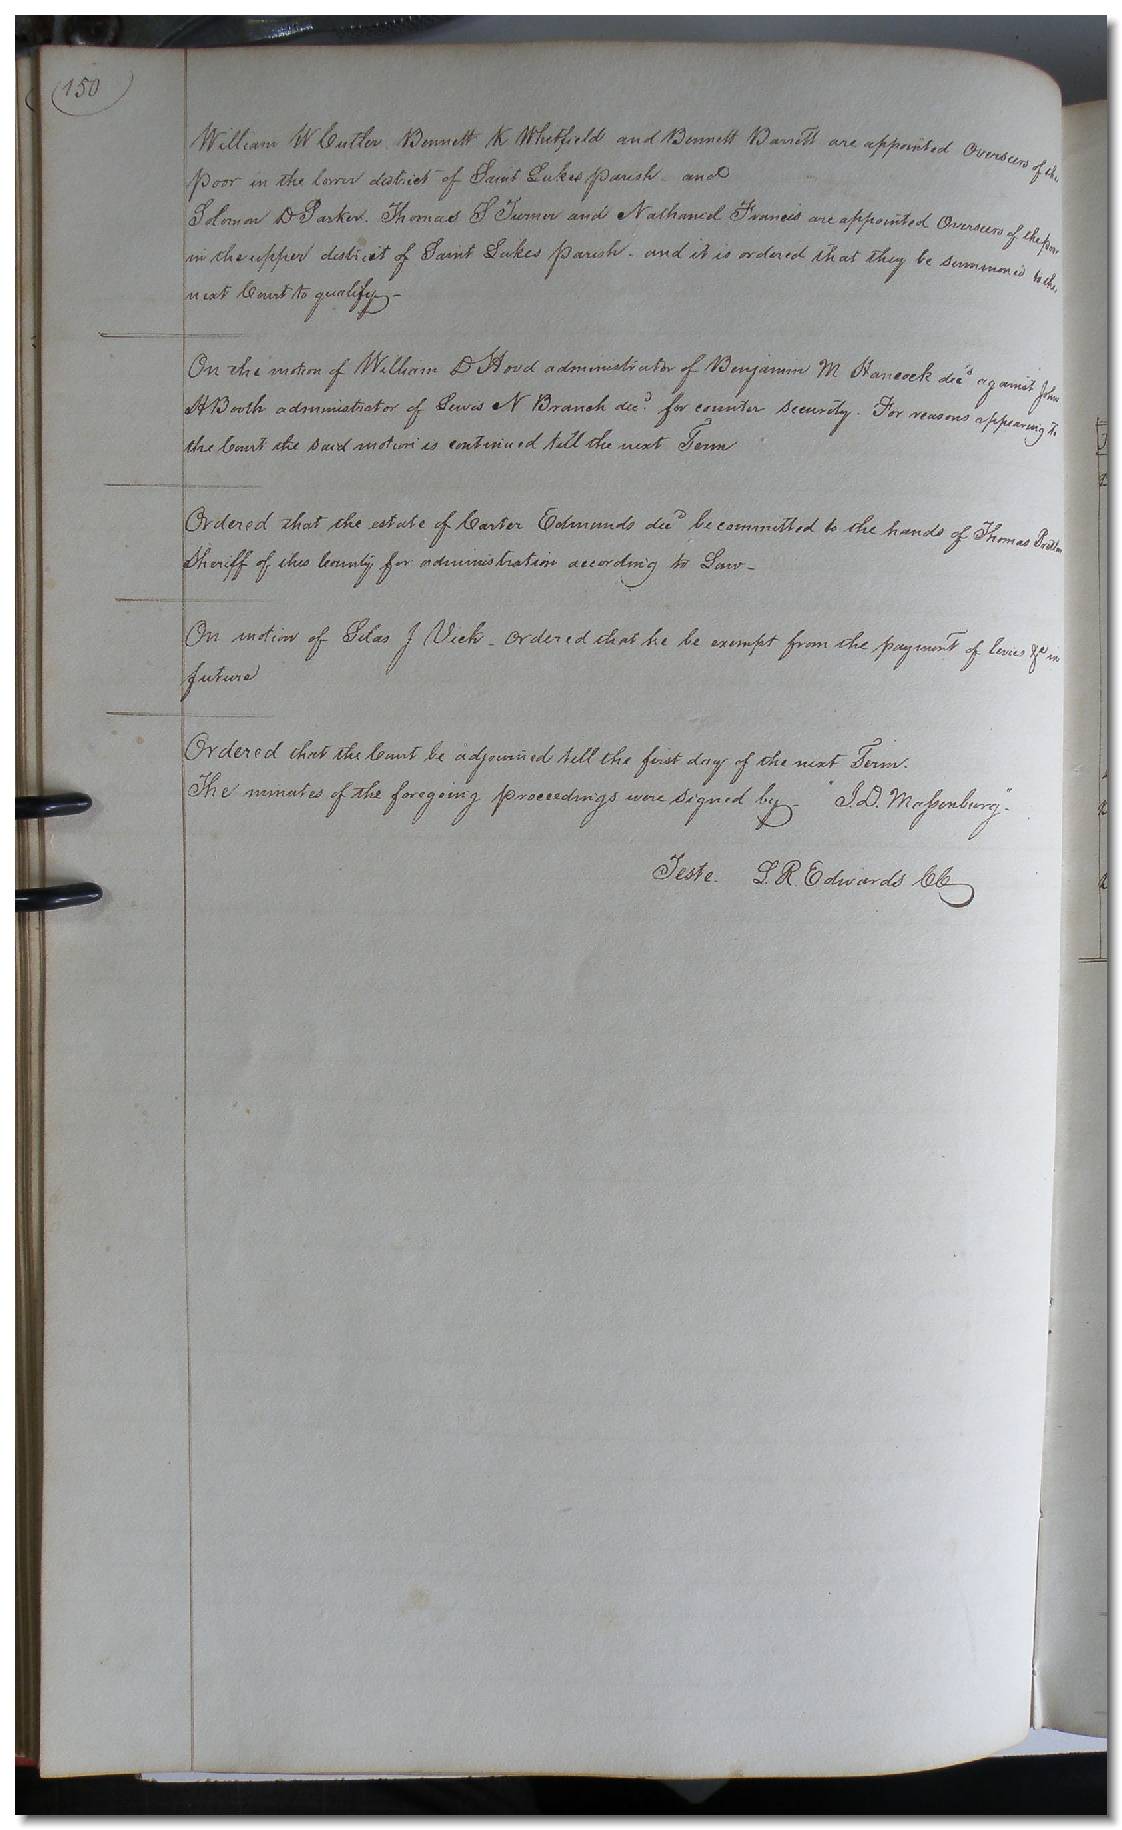 150
William W Cutler Bennett K Whitfield and Bennett Barrett are appointed Overseers of the
poor in the lower district of Saint Lukes parish and
Solomon D Parker. Thomas S Turner and Nathaniel Francis are appointed Overseers of the poor
in the upper district of Saint Lukes parish - and it is ordered that they be summoned to the
next Court to qualify -
On the motion of William D Hood administrator of Benjamin M Hancock decd against John
H Booth administrator of Lewis N Branch decd for counter security. For reasons appearing to
the Court the said motion is continued till the next Term
Ordered that the estate of Carter Edmunds decd be committed to the hands of Thomas Pretlow
Sheriff of this County for administration according to Law -
On motion of Silas J Vick - ordered that he be exempt from the payment of levies &c in
future
Ordered that the Court be adjourned till the first day of the next Term.
The minutes of the foregoing proceedings were signed by - "J.D. Massenburg"
Teste. L.R. Edwards CC